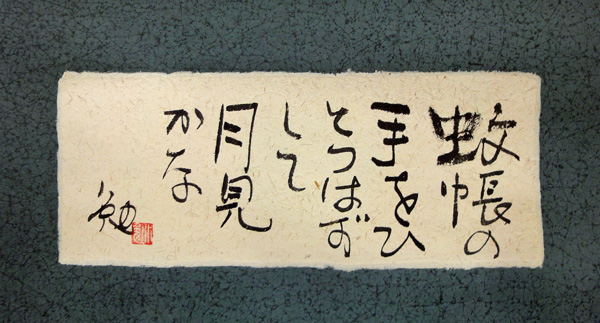 蚊帳の
手をひ
とつはず
して
月見
かな
勉